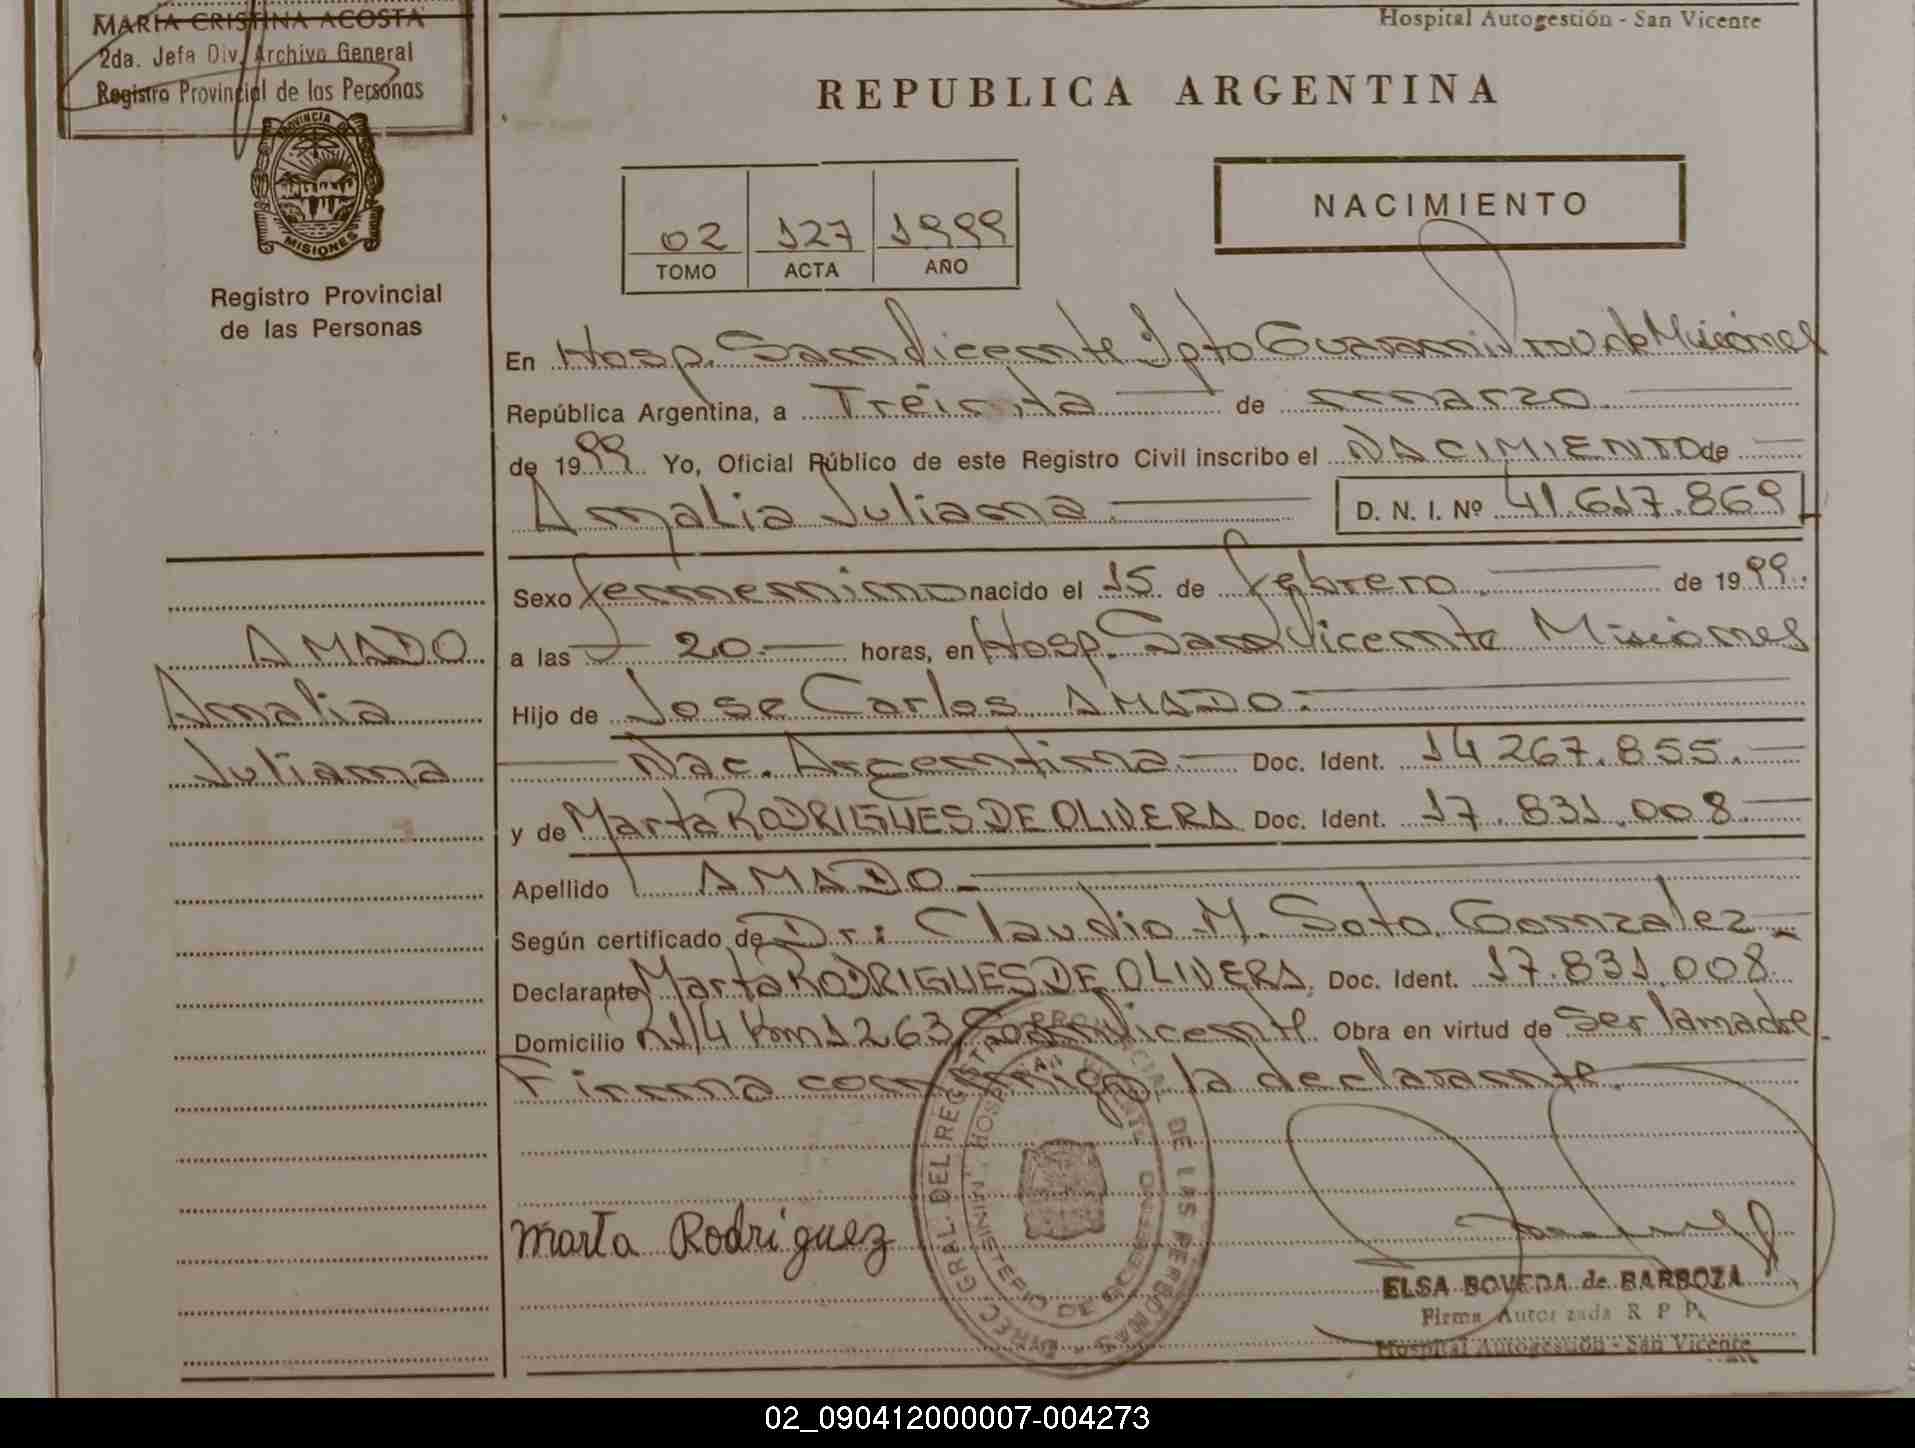 MARIA CRISTINA ACOSTA
2da. Jefa Div. Archivo General
Registro Provincial de las Personas
Hospital Autogestión - San Vicente
REPUBLICA ARGENTINA
PROVINCIA DE
MISIONES
Registro Provincial
de las Personas
02 127 1999
TOMO ACTA AÑO
NACIMIENTO
En Hosp. San Vicente Dpto Guarani Prov de Misiones
República Argentina, a Treinta de marzo
de 1999 Yo, Oficial Público de este Registro Civil inscribo el NACIMIENTO de
Amalia Juliana D. N. I. Nº 41.617.869
Sexo femenino nacido el 15 de febrero de 1999.
a las 20.- horas, en Hosp. San Vicente Misiones
Hijo de Jose Carlos AMADO.
Nac. Argentina Doc. Ident. 14 267.855.
y de Marta RODRIGUES DE OLIVERA Doc. Ident. 17.831.008
Apellido AMADO
Según certificado de Dr: Claudio M. Soto Gonzalez
Declarante Marta RODRIGUES DE OLIVERA. Doc. Ident. 17.831.008
Domicilio R14 Km 1263 San Vicente Obra en virtud de Ser la madre.
Firma conmigo la declarante.
AMADO
Amalia
Juliana
Marta Rodriguez
DIREC. GRAL. DEL REGISTRO PROVINCIAL DE LAS PERSONAS
MINISTERIO DE GOBIERNO
ELSA BOVEDA de BARBOZA
Firma Autorizada R P P.
Hospital Autogestión - San Vicente
02_090412000007-004273